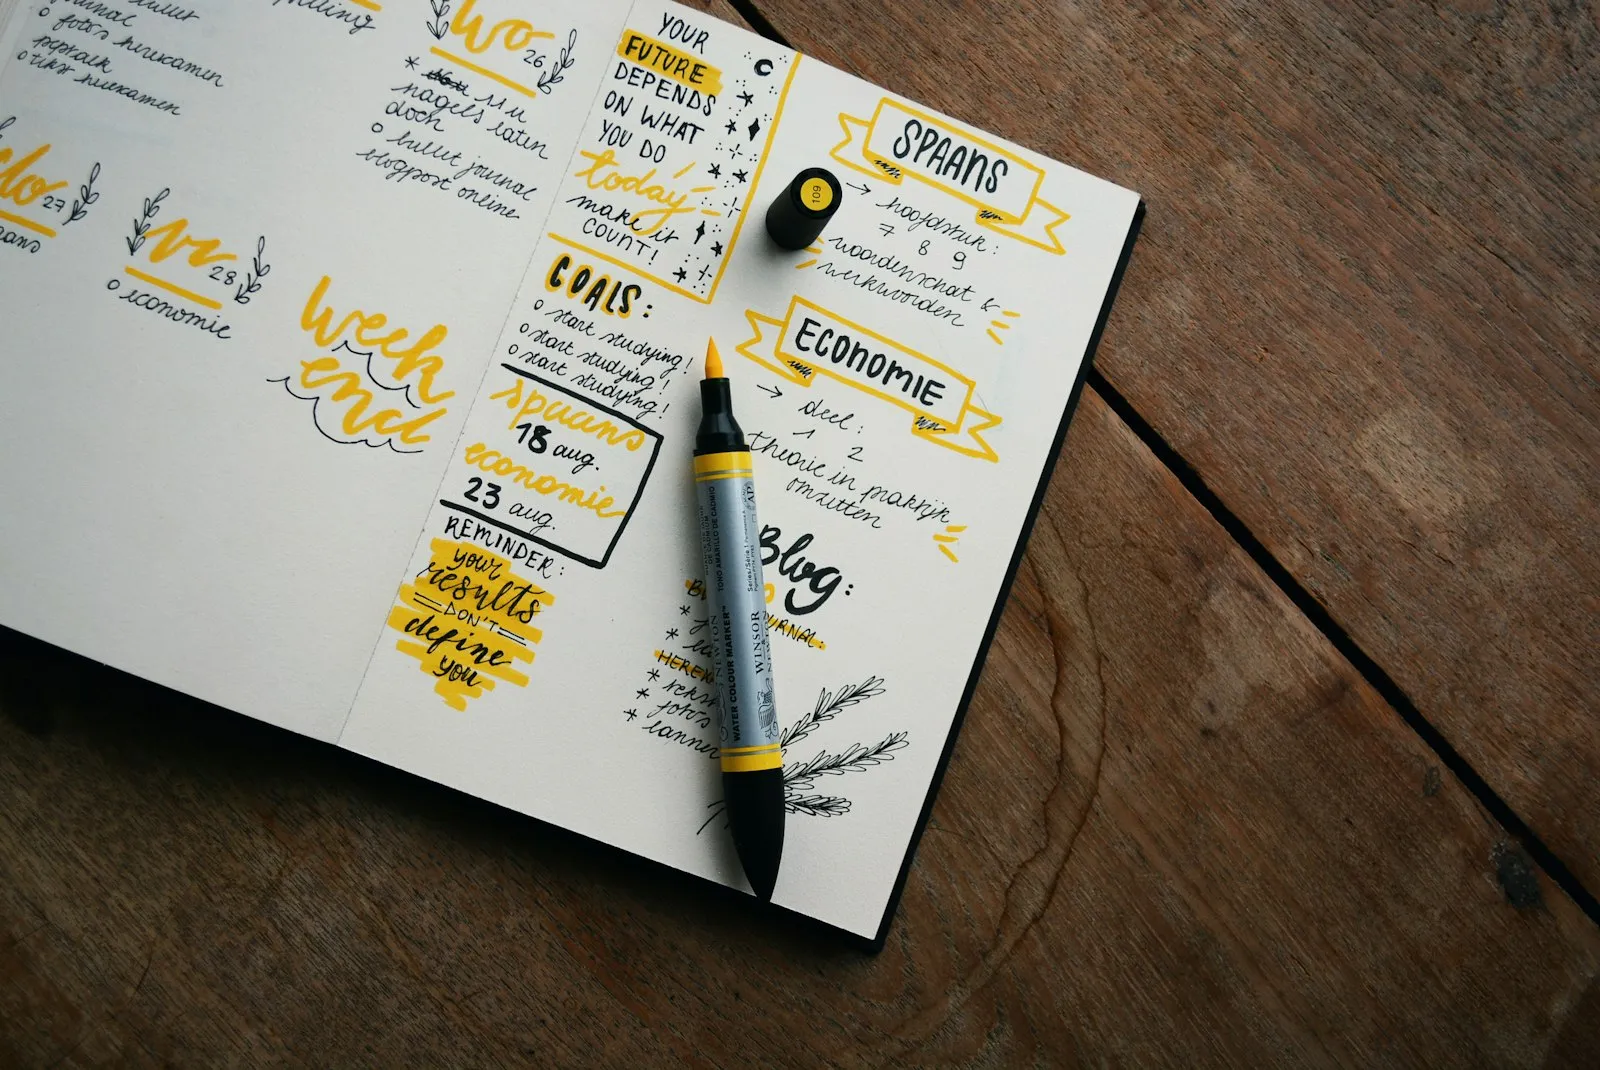 bullet
journal
o foto's hierekamen
o tekst hierekamen
wo 26
* 11 u
nagels laten
doen
o bullet journal
blogpost online
do 27
vr 28
o economie
week
end
YOUR
FUTURE
DEPENDS
ON WHAT
YOU DO
today
make it
COUNT!
GOALS:
o start studying!
o start studying!
o start studying!
spaans
18 aug.
economie
23 aug.
REMINDER:
your
results
DON'T
define
you
SPAANS
→ hoofdstuk:
7 8 9
woordenschat &
werkwoorden
ECONOMIE
→ deel:
1 2
theorie in praktijk
omzetten
Blog:
URNAL:
HEREN
* tekst
* foto's
* banner
109
WATER COLOUR MARKER™
WINSOR
& NEWTON
Series/Série 1
TONO AMARILLO DE CADMIO
AP